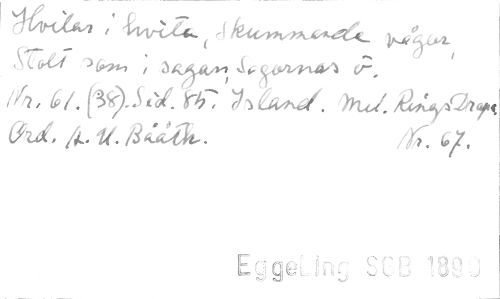 Hvilar i hvita, skummande vågor,
Stolt som i sagan, Sagornas ö.
Nr. 61. (38). Sid. 85. Island. Mel. Rings Drapa
Ord. A. U. Bååth. Nr. 67.
EggeLing SCB 1890